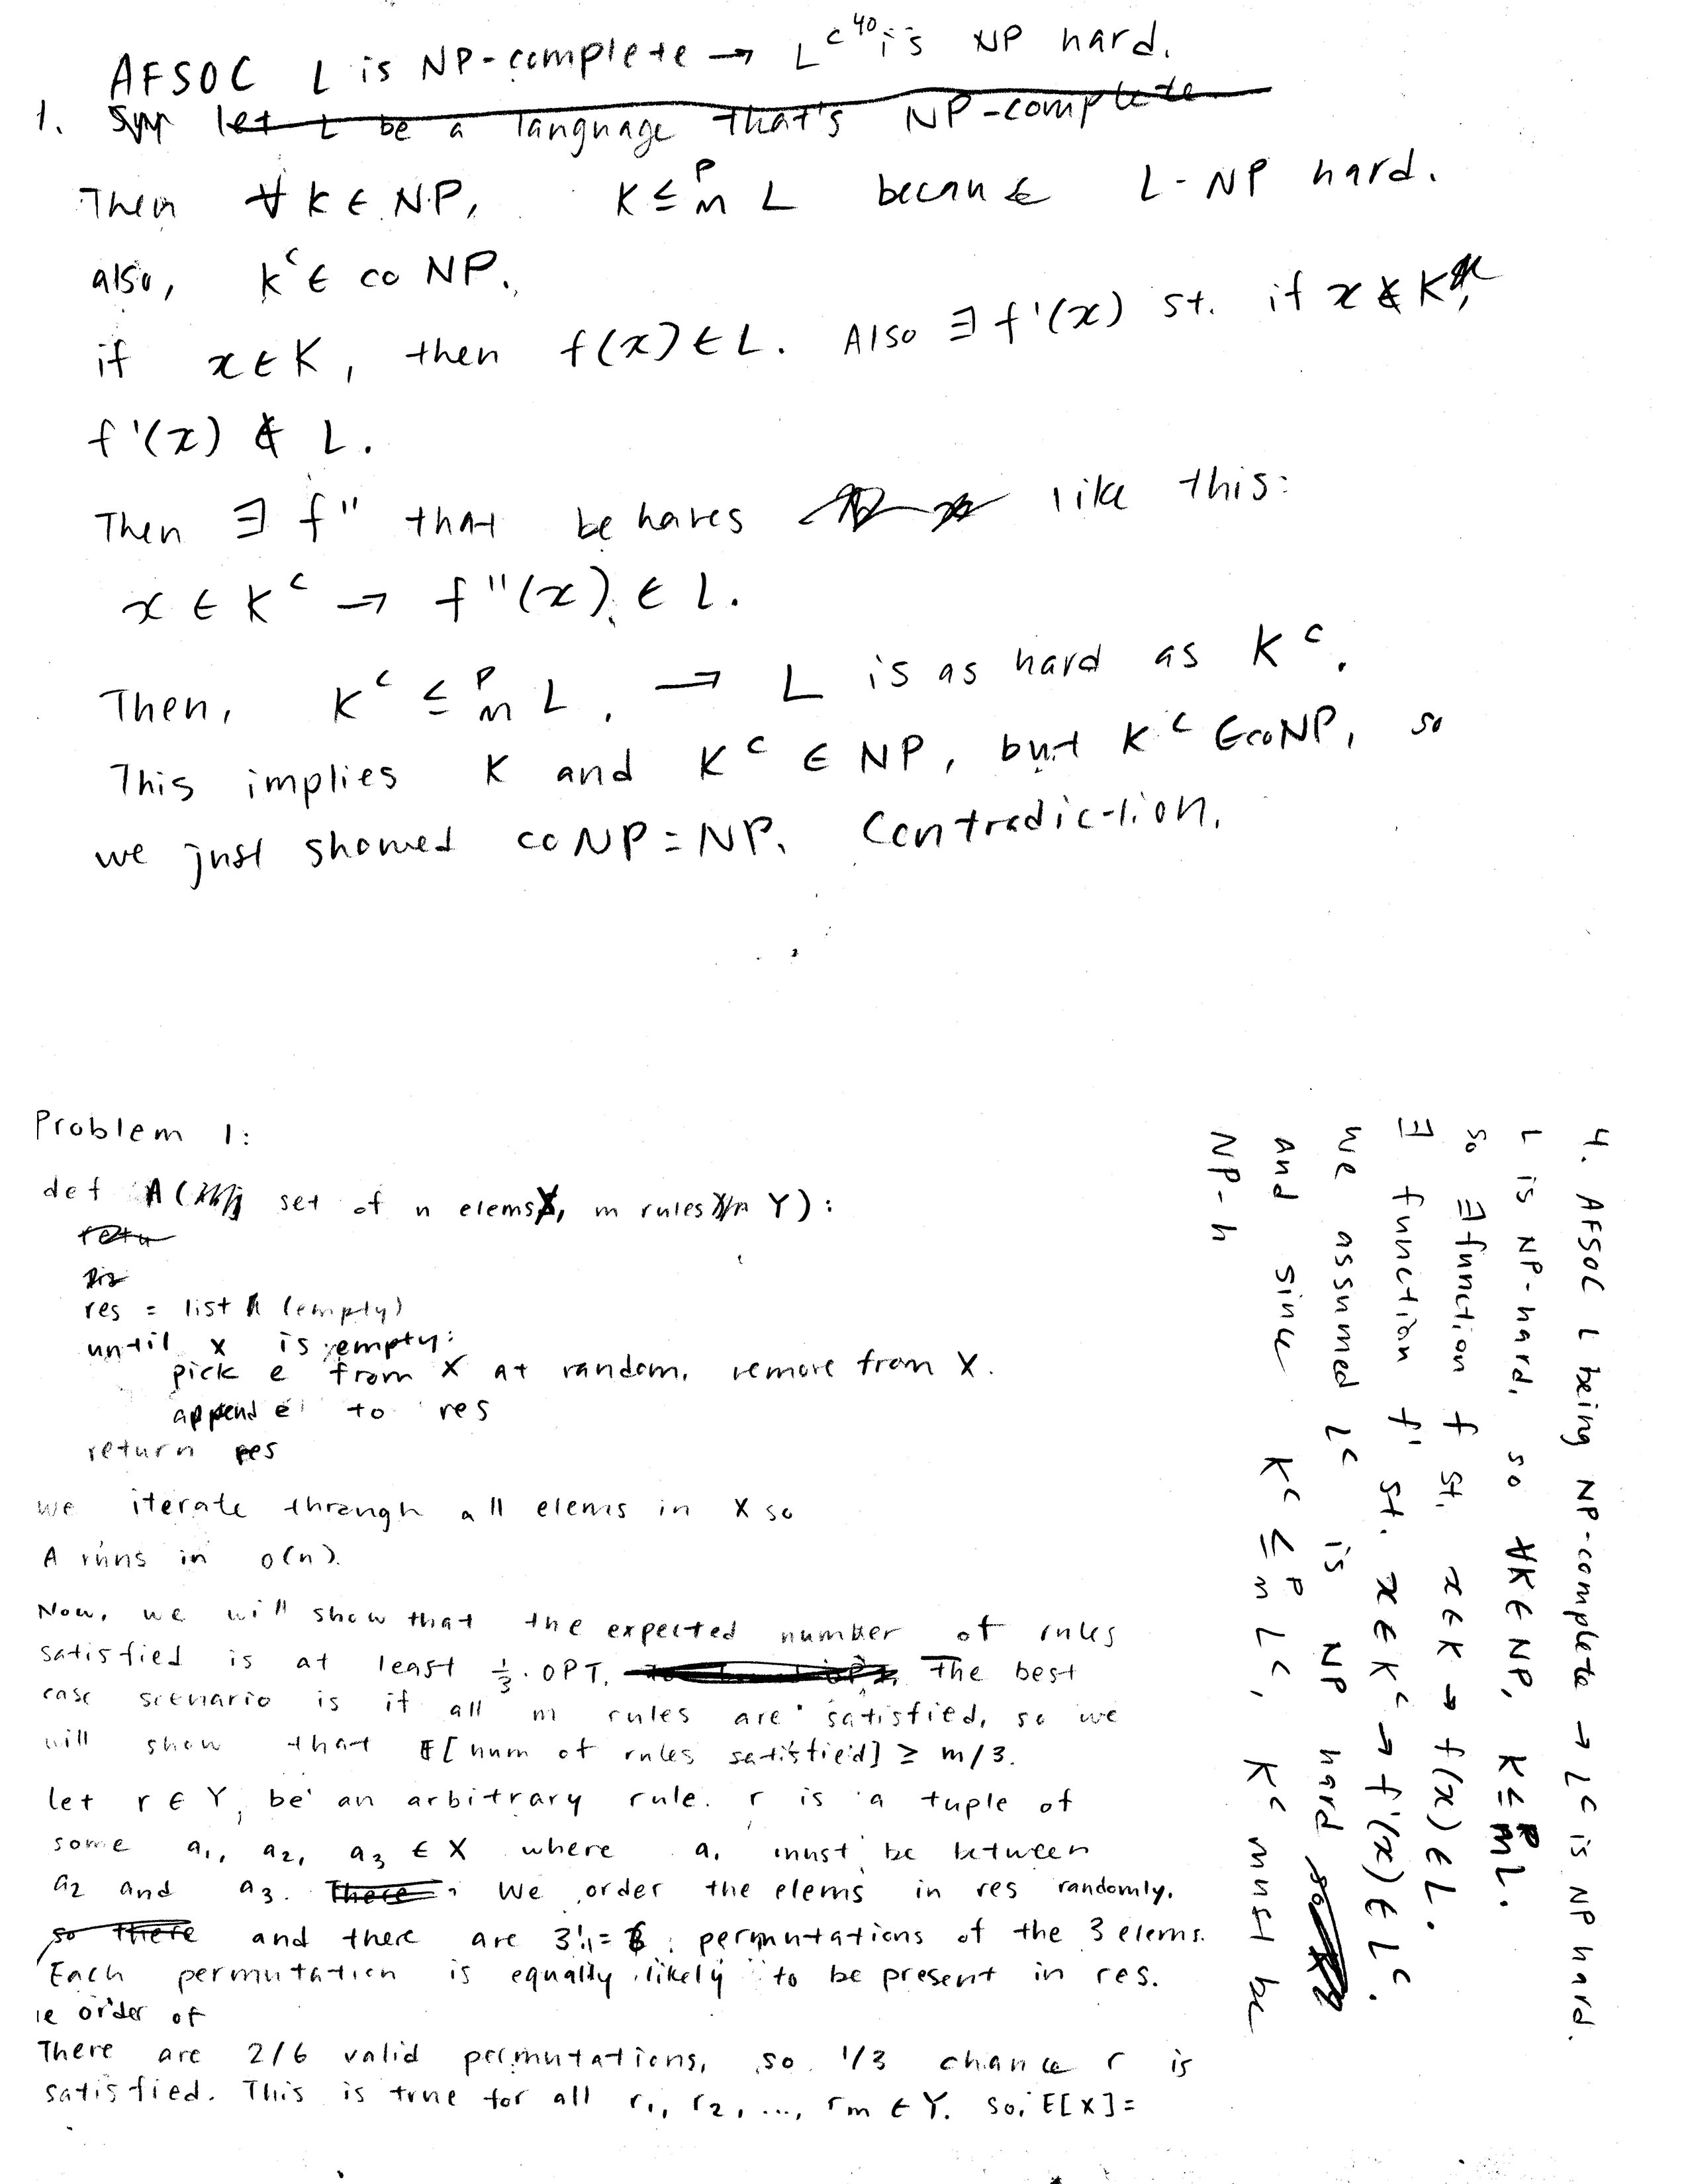 AFSOC L is NP-complete → L^c is NP hard.
1. let L be a language that's NP-complete.
Then ∀ K ∈ NP, K ≤ᴾₘ L because L - NP hard.
also, K^c ∈ co NP.
if x ∈ K, then f(x) ∈ L. Also ∃ f'(x) st. if x ∉ K,
f'(x) ∉ L.
Then ∃ f" that behaves like this:
x ∈ K^c → f"(x) ∈ L.
Then, K^c ≤ᴾₘ L. → L is as hard as K^c.
This implies K and K^c ∈ NP, but K^c ∈ coNP, so
we just showed coNP = NP. Contradiction.
Problem 1:
def A( set of n elems X, m rules Y):
retu
res = list (empty)
until X is empty:
pick e from X at random, remove from X.
append e to res
return res
we iterate through all elems in X so
A runs in O(n).
Now, we will show that the expected number of rules
satisfied is at least 1/3 · OPT. The best
case scenario is if all m rules are satisfied, so we
will show that E[num of rules satisfied] ≥ m/3.
let r ∈ Y be an arbitrary rule. r is a tuple of
some a₁, a₂, a₃ ∈ X where a₁ must be between
a₂ and a₃. There We order the elems in res randomly.
so there and there are 3! = 6 permutations of the 3 elems.
Each permutation is equally likely to be present in res.
ie order of
There are 2/6 valid permutations, so 1/3 chance r is
satisfied. This is true for all r₁, r₂, ..., rm ∈ Y. So, E[X] =
4. AFSOC L being NP-complete → L^c is NP hard.
L is NP-hard, so ∀K ∈ NP, K ≤ᴾₘ L.
so ∃ function f st. x ∈ K → f(x) ∈ L.
∃ function f' st. x ∈ K^c → f'(x) ∈ L^c.
we assumed L^c is NP hard
and since K^c ≤ᴾₘ L^c, K^c must be
NP-h